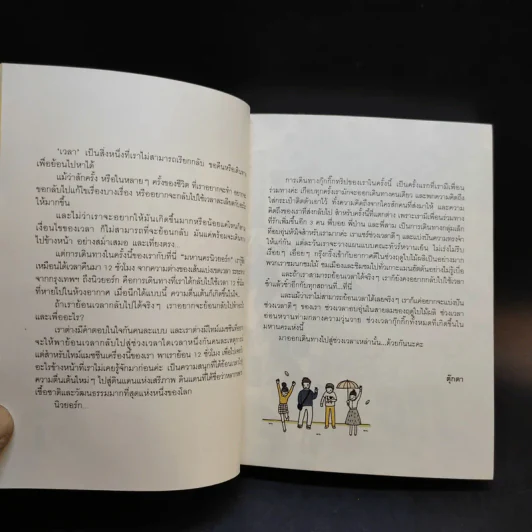 "เวลา" เป็นสิ่งหนึ่งที่เราไม่สามารถเรียกกลับ ขอคืนหรือเดินทาง
เพื่อย้อนไปหาได้
แม้ว่าสักครั้ง หรือในหลายๆ ครั้งของชีวิต ที่เราอยากจะทำ
ขอกลับไปแก้ไขเรื่องบางเรื่อง หรืออยากจะกลับไปใช้เวลา
ให้มากขึ้น
และไม่ว่าเราจะอยากให้มันเกิดขึ้นมากหรือน้อยแค่ไหน
เงื่อนไขของเวลา ก็ไม่สามารถที่จะย้อนกลับ มันแค่พร้อมจะเดิน
ไปข้างหน้า อย่างสม่ำเสมอ และเที่ยงตรง
แต่การเดินทางในครั้งนี้ของเรากับที่นี่ "มหานครนิวยอร์ก"
เหมือนได้เวลาคืนมา 12 ชั่วโมง จากความต่างของเส้นแบ่งเขตเวลา
จากกรุงเทพฯ ถึงนิวยอร์ก คือการเดินทางที่เราได้กลับไปใช้เวลา 12 ชั่วโมง
ที่หายไปในห้วงอากาศ เมื่อนึกได้แบบนี้ ความตื่นเต้นก็เกิดขึ้น
ถ้าเราย้อนเวลากลับไปได้จริงๆ เราอยากจะย้อนกลับไป
และเพื่ออะไร?
เราต่างมีคำตอบในใจกันคนละแบบ และต่างมีไทม์แมชชีน
จะให้พาย้อนเวลากลับไปสู่ช่วงเวลาใดเวลาหนึ่งกันคนละเหตุ
แต่สำหรับไทม์แมชชีนเครื่องนี้ของเรา พาเราย้อน 12 ชั่วโมง เพื่อไป
อะไรข้างหน้าที่เราไม่เคยรู้จักมาก่อน เป็นความสนุกที่ได้
ความตื่นเต้นใหม่ๆ ไปสู่ดินแดนแห่งเสรีภาพ ดินแดนที่ได้ชื่อว่า
เชื้อชาติและวัฒนธรรมมากที่สุดแห่งหนึ่งของโลก
นิวยอร์ก...
การเดินทางกุ๊กกิ๊กทริปของเราในครั้งนี้ เป็นครั้งแรกที่เรามีเพื่อน
ร่วมทางค่ะ เกือบทุกครั้งเรามักจะออกเดินทางคนเดียว และพกความคิดถึง
ใส่กระเป๋าติดตัวเอาไว้ ทั้งความคิดถึงจากใครสักคนที่ส่งมาให้ และความ
คิดถึงของเราที่ส่งกลับไป สำหรับครั้งนี้ที่แตกต่าง เพราะเรามีเพื่อนร่วมทาง
ที่รักเพิ่มขึ้นอีก 3 คน พี่บอย พี่ป่าน และพี่สาม เป็นการเดินทางกลุ่มเล็ก
ที่อบอุ่นหัวใจสำหรับเรามากค่ะ เราแชร์ช่วงเวลาดีๆ และแบ่งปันความทรงจำ
ให้แก่กัน แต่ละวันเราจะวางแผนแบบคณะทัวร์หวานเย็น ไม่เร่งไม่รีบ
เรื่อยๆ เอื่อยๆ
พวกเราชมนกชมไม้ ชมเมืองและชิมขนมไปทั่วเกาะแมนฮัตตันอย่างไม่รู้เบื่อ
และถ้าเราสามารถย้อนเวลาได้จริงๆ เราก็ยังคงอยากกลับไปใช้เวลา
ซ้ำแล้วซ้ำอีกกับทุกสถานที่...ที่นี่
และแม้ว่าเราไม่สามารถย้อนเวลาได้จริงๆ เราก็แค่อยากจะแบ่งปัน
ช่วงเวลาดีๆ ของเรา ช่วงเวลาอบอุ่นในสายลมของฤดูใบไม้ผลิ ช่วงเวลา
อ่อนหวานท่ามกลางความวุ่นวาย ช่วงเวลากุ๊กกิ๊กทั้งหมดที่เกิดขึ้นใน
มหานครแห่งนี้
มาออกเดินทางไปสู่ช่วงเวลาเหล่านั้น...ด้วยกันนะคะ
ตุ๊กตา